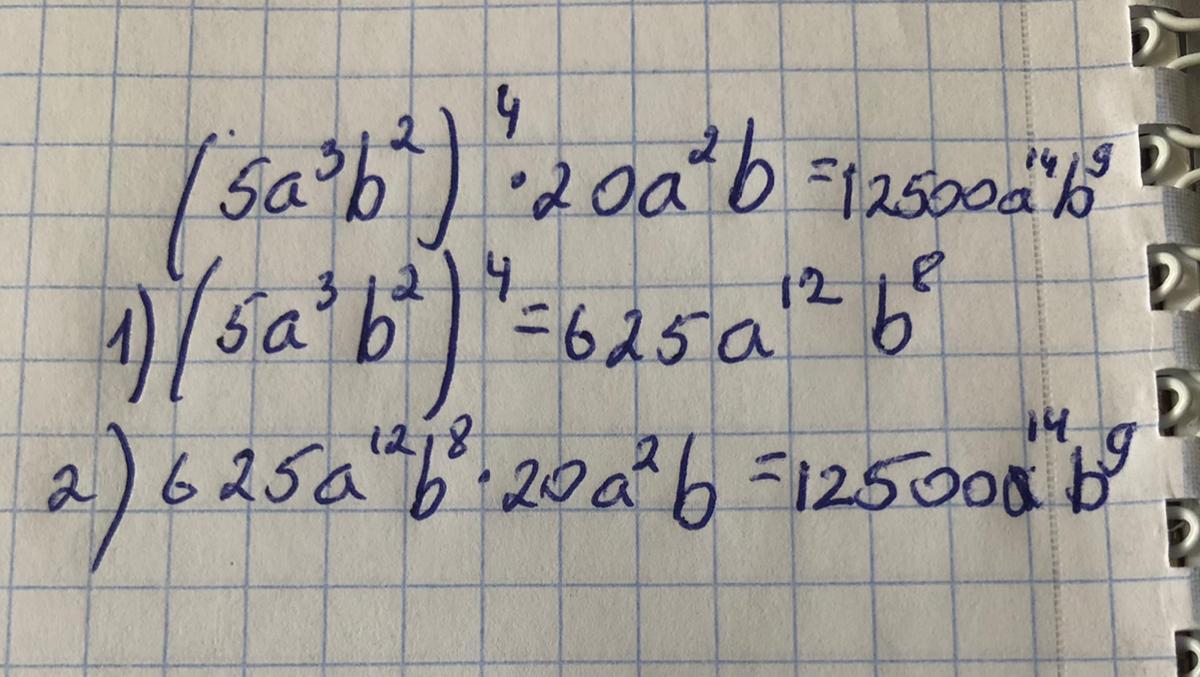 (5a³b²)⁴ · 20a²b = 12500a¹⁴b⁹
1) (5a³b²)⁴ = 625a¹²b⁸
2) 625a¹²b⁸ · 20a²b = 12500a¹⁴b⁹